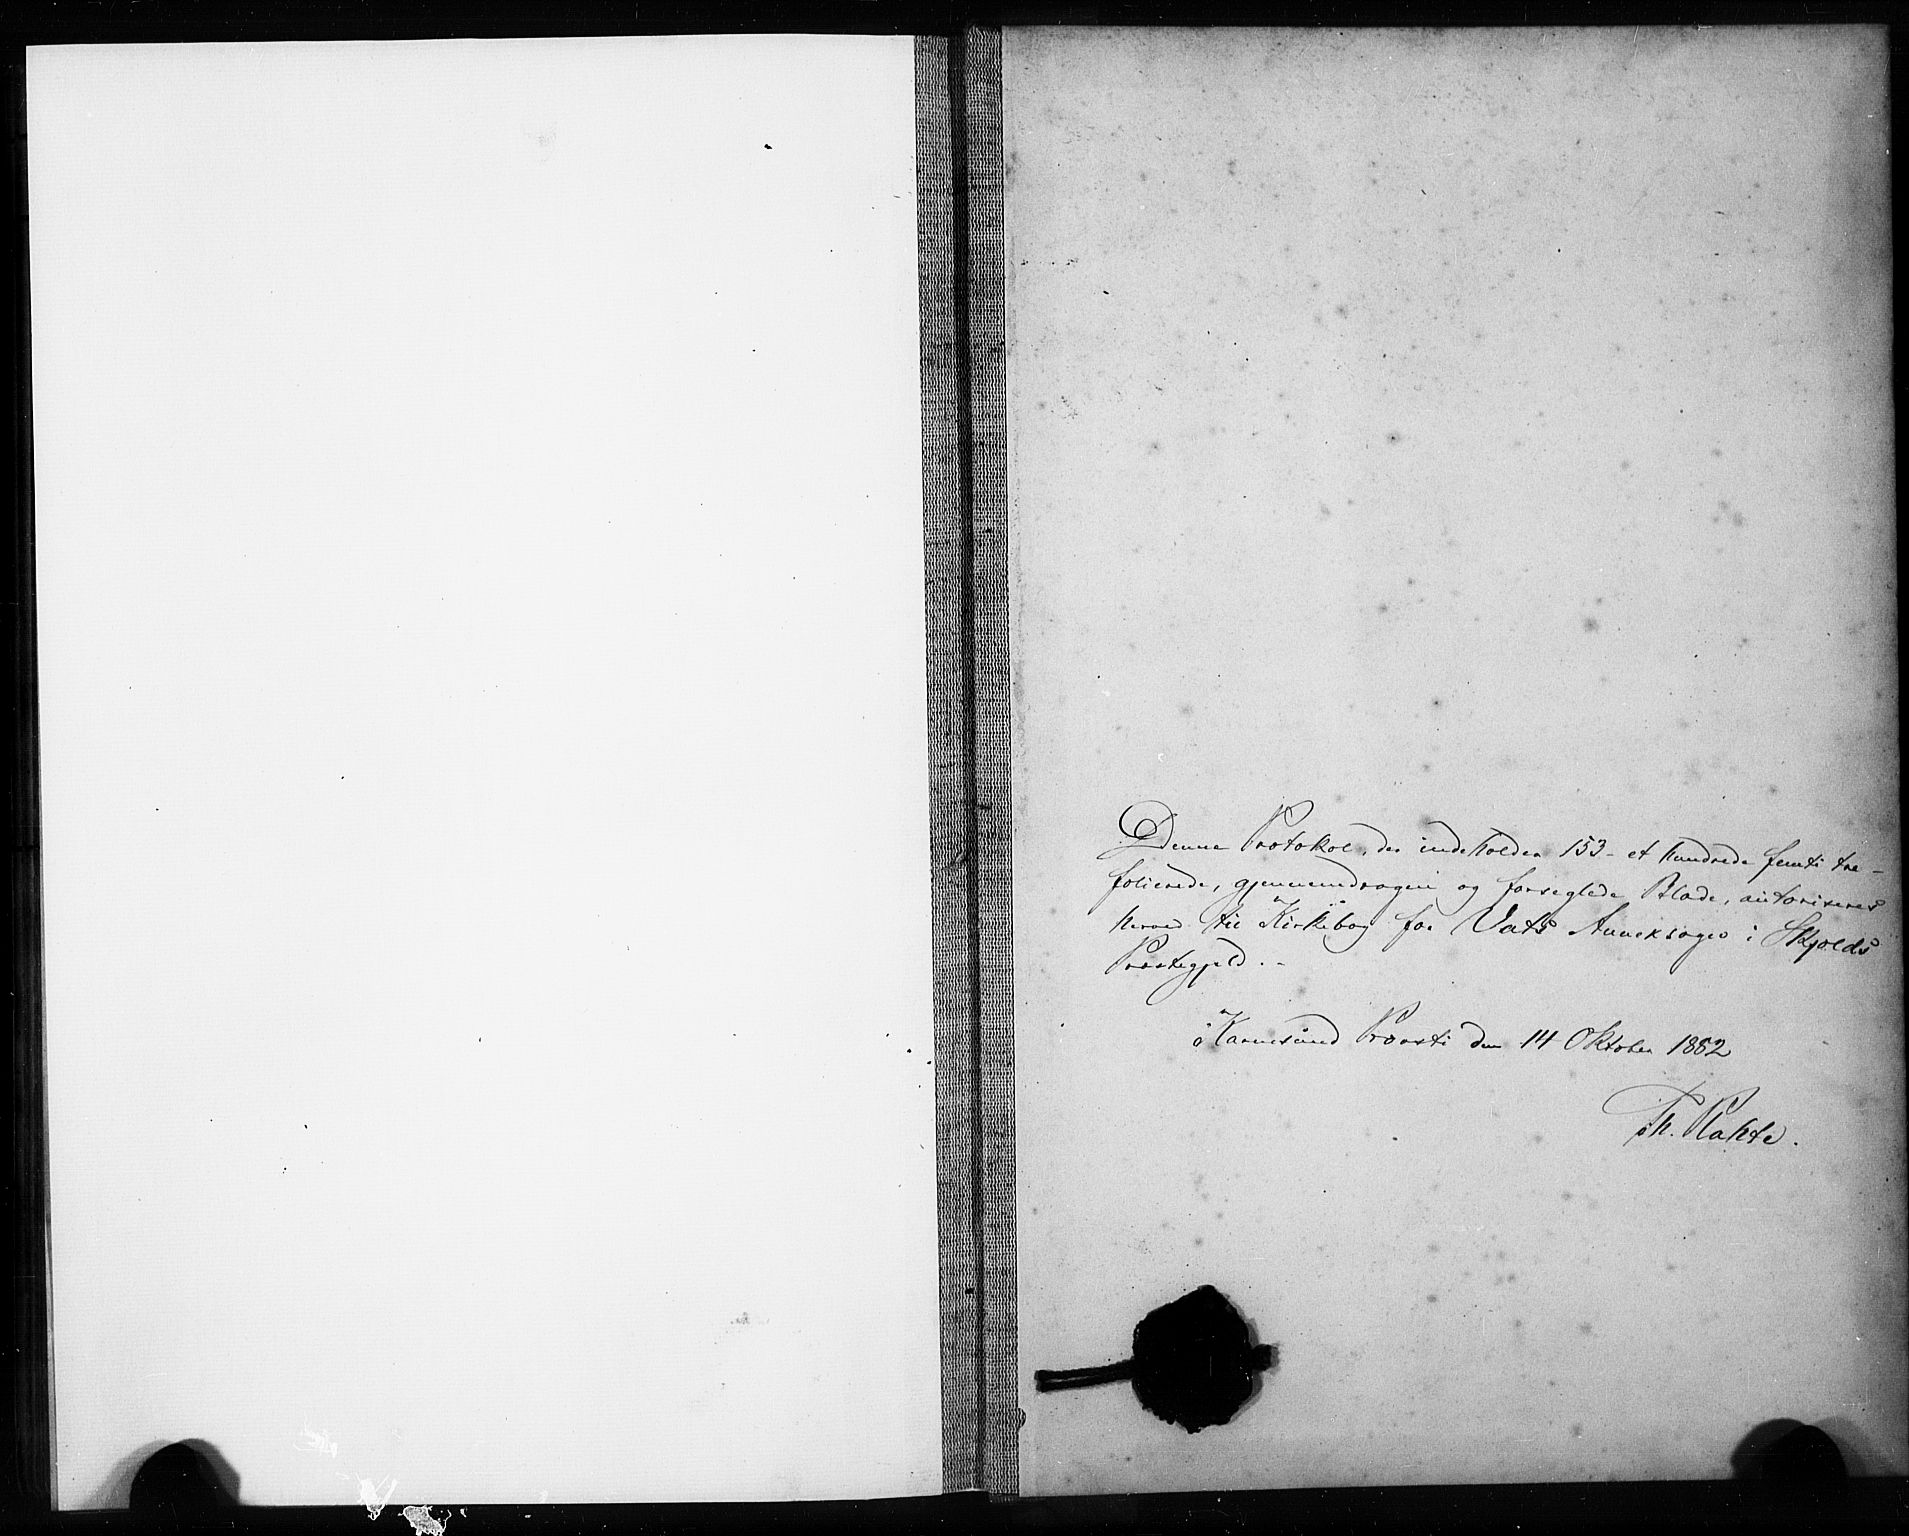 Denne Protokol, der indeholder 153 - et hundrede femti tre -
folierede, gjennemdragne og forseglede Blade, autoriseres
herved til Kirkebog for Vats Annexsogn i Skjolds
Præstegjeld. -
Karmsund Provsti den 14 Oktober 1882
Th. Plahte.